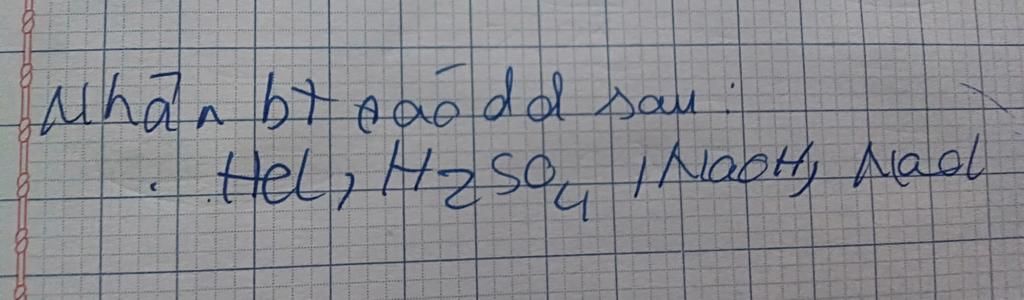 Nhận bt các dd sau:
. HCl, H2SO4, NaOH, NaCl